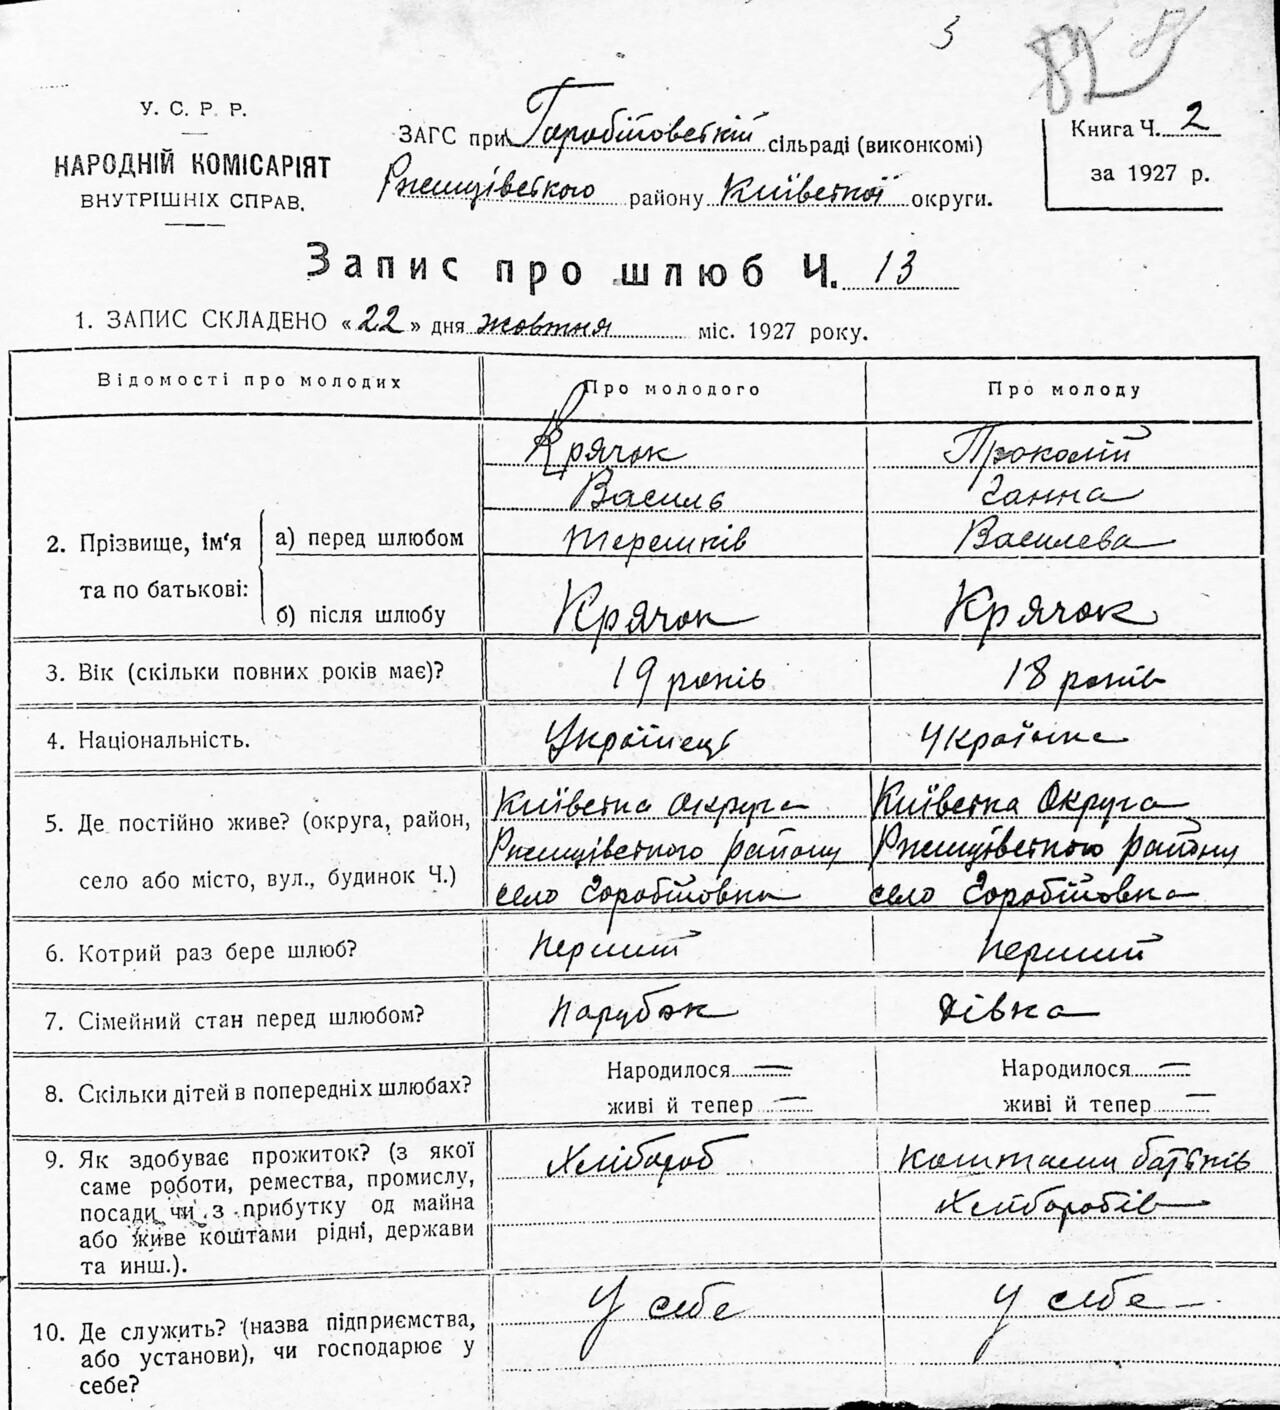 3
У. С. Р. Р.
НАРОДНІЙ КОМІСАРІЯТ
ВНУТРІШНІХ СПРАВ.
ЗАГС при Горобіївській сільраді (виконкомі)
Ржищівського району Київської округи.
Книга Ч. 2
за 1927 р.
Запис про шлюб Ч. 13
1. ЗАПИС СКЛАДЕНО «22» дня жовтня міс. 1927 року.
Відомості про молодих Про молодого Про молоду
2. Прізвище, ім'я та по батькові:
а) перед шлюбом
Крячок Прокопій
Василь Ганна
Терешків Василева
б) після шлюбу Крячок Крячок
3. Вік (скільки повних років має)? 19 років 18 років
4. Національність. Українець Українка
5. Де постійно живе? (округа, район,
село або місто, вул., будинок Ч.)
Київська округа Київська Округа
Ржищівського району Ржищівського району
село Горобіївка село Горобіївка
6. Котрий раз бере шлюб? перший перший
7. Сімейний стан перед шлюбом? парубок дівка
8. Скільки дітей в попередніх шлюбах? Народилося — Народилося —
живі й тепер — живі й тепер —
9. Як здобуває прожиток? (з якої
саме роботи, ремества, промислу,
посади, чи з прибутку од майна
або живе коштами рідні, держави
та инш.).
Хлібороб коштами батьків
Хліборобів
10. Де служить? (назва підприємства,
або установи), чи господарює у
себе?
У себе У себе